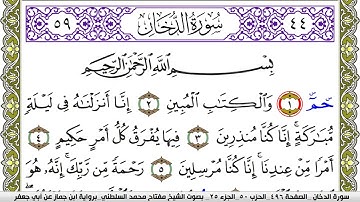 ٤٤ سُورَةُ الدُّخَانِ ٥٩
بِسْمِ اللَّهِ الرَّحْمَٰنِ الرَّحِيمِ
حمٓ ١ وَالْكِتَابِ الْمُبِينِ ٢ إِنَّا أَنزَلْنَاهُ فِي لَيْلَةٍ
مُّبَارَكَةٍ إِنَّا كُنَّا مُنذِرِينَ ٣ فِيهَا يُفْرَقُ كُلُّ أَمْرٍ حَكِيمٍ ٤
أَمْرًا مِّنْ عِندِنَا إِنَّا كُنَّا مُرْسِلِينَ ٥ رَحْمَةً مِّن رَّبِّكَ إِنَّهُ هُوَ
سورة الدخان . الصفحة ٤٩٦ . الحزب ٥٠ . الجزء ٢٥ . بصوت الشيخ مفتاح محمد السلطني .برواية ابن جماز عن أبي جعفر